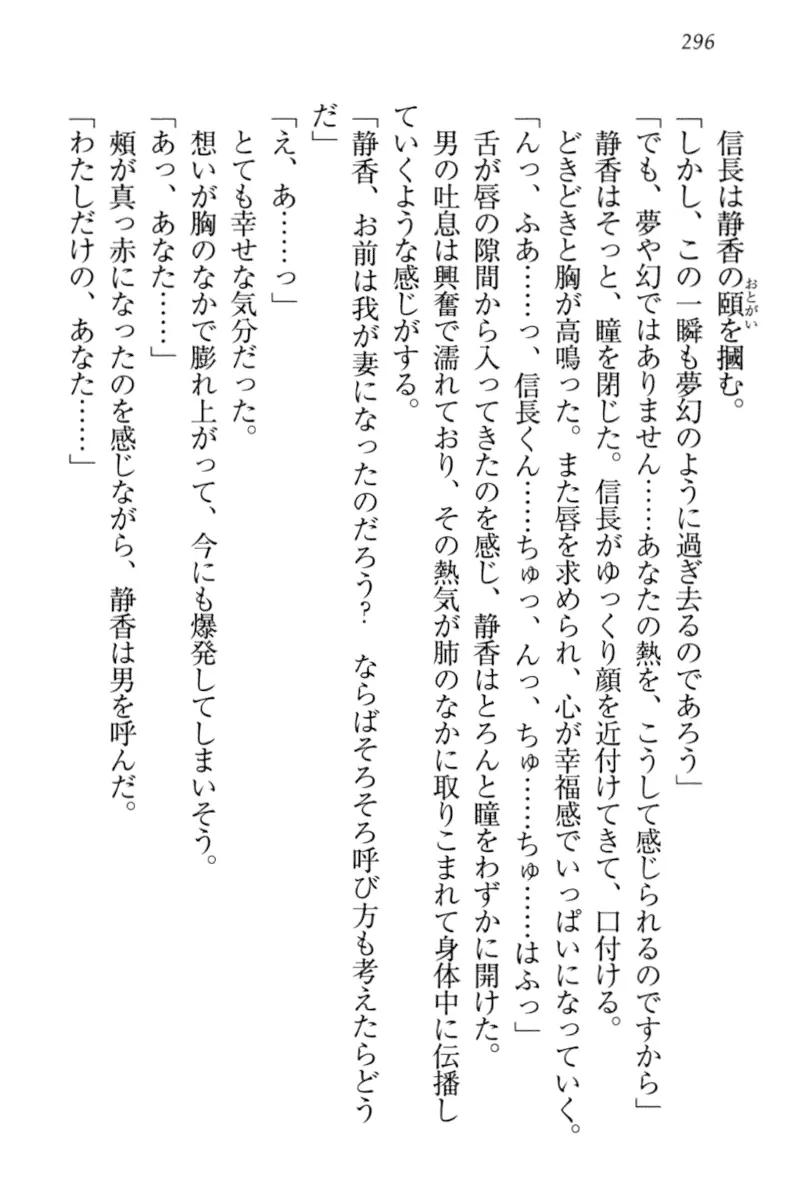 296
信長は静香の頤を摑む。
おとがい
「しかし、この一瞬も夢幻のように過ぎ去るのであろう」
「でも、夢や幻ではありません……あなたの熱を、こうして感じられるのですから」
静香はそっと、瞳を閉じた。信長がゆっくり顔を近付けてきて、口付ける。
どきどきと胸が高鳴った。また唇を求められ、心が幸福感でいっぱいになっていく。
「んっ、ふあ……っ、信長くん……ちゅっ、んっ、ちゅ……ちゅ……はふっ」
舌が唇の隙間から入ってきたのを感じ、静香はとろんと瞳をわずかに開けた。
男の吐息は興奮で濡れており、その熱気が肺のなかに取りこまれて身体中に伝播し
ていくような感じがする。
「静香、お前は我が妻になったのだろう？　ならばそろそろ呼び方も考えたらどう
だ」
「え、あ……っ」
とても幸せな気分だった。
想いが胸のなかで膨れ上がって、今にも爆発してしまいそう。
「あっ、あなた……」
頬が真っ赤になったのを感じながら、静香は男を呼んだ。
「わたしだけの、あなた……」